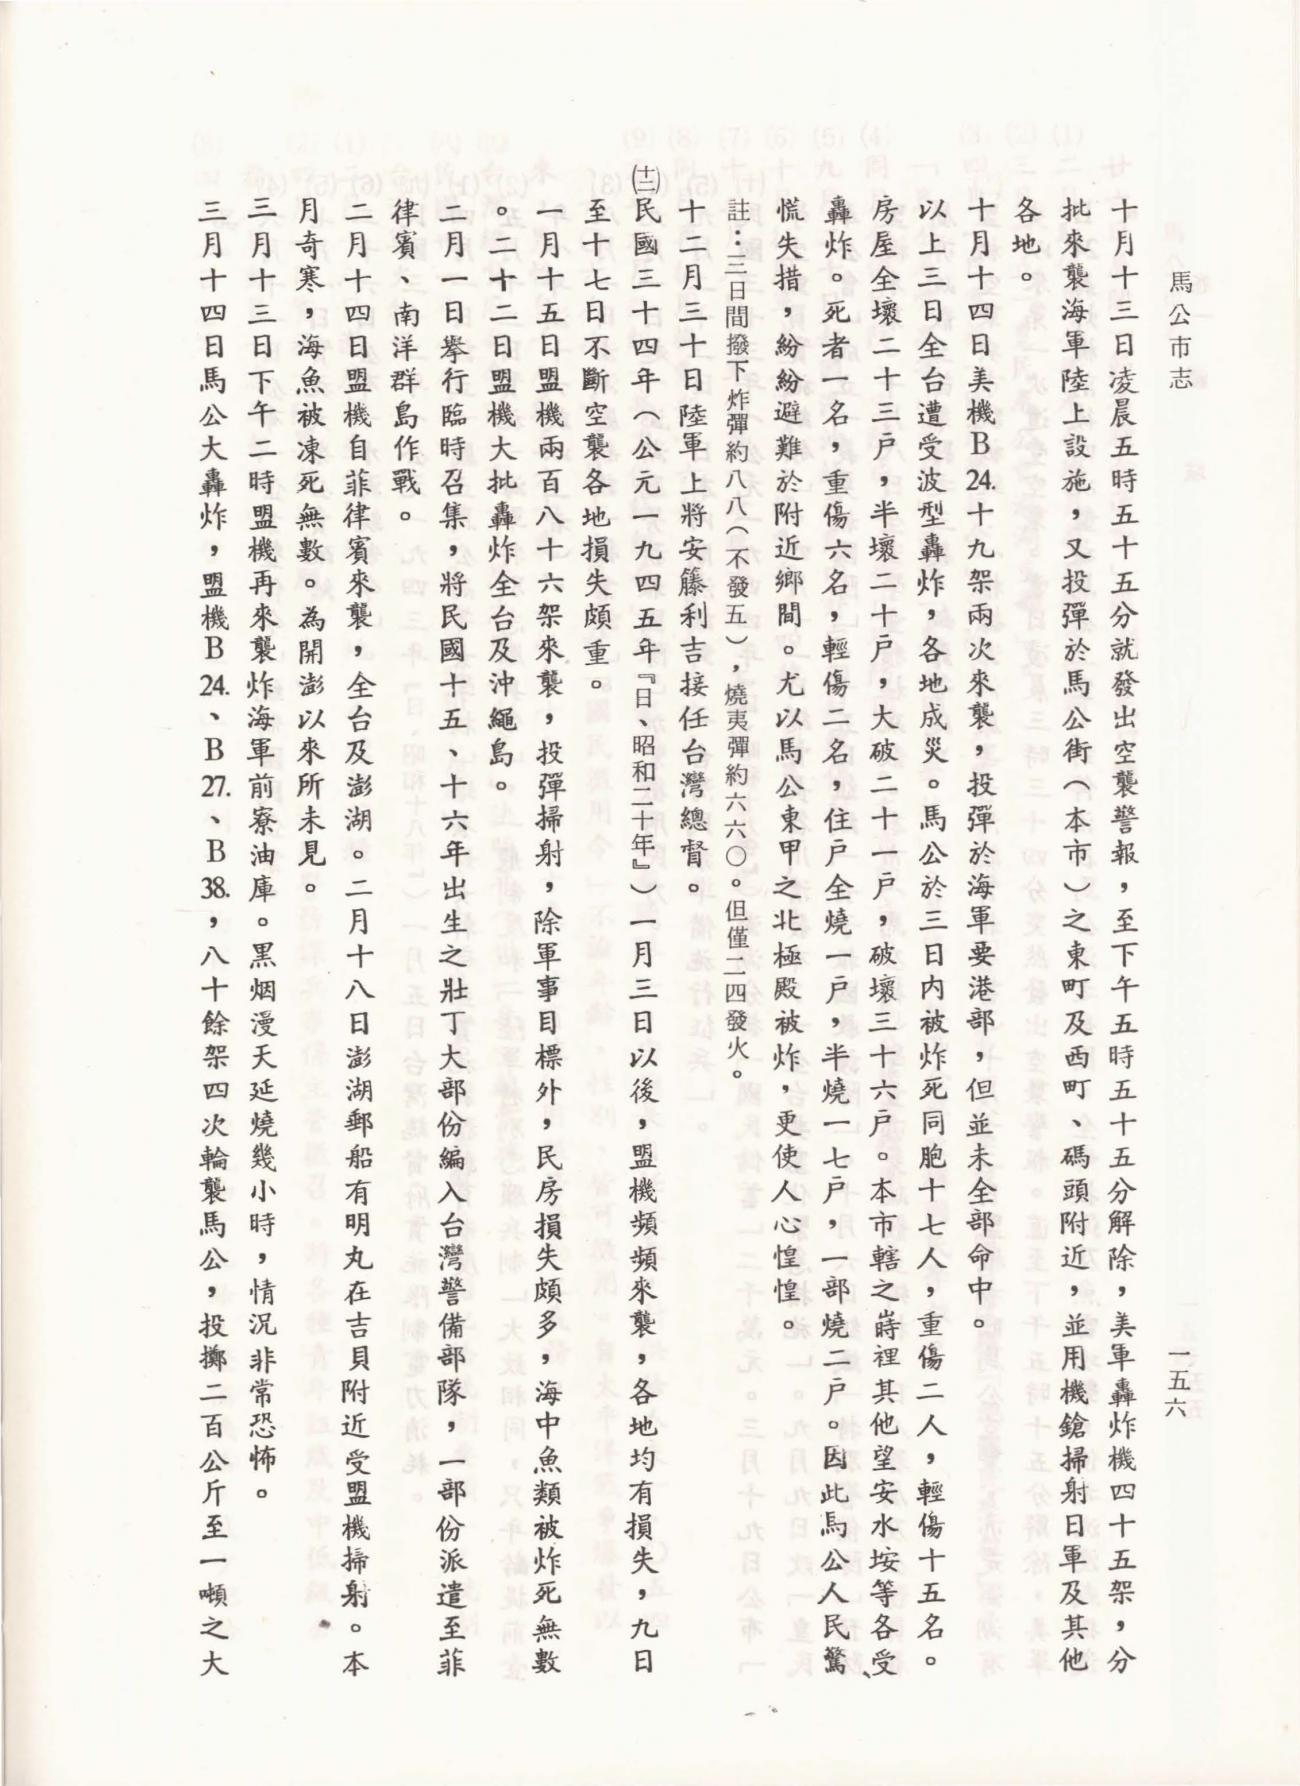 馬公市志
一五六
十月十三日凌晨五時五十五分就發出空襲警報，至下午五時五十五分解除，美軍轟炸機四十五架，分
批來襲海軍陸上設施，又投彈於馬公街（本市）之東町及西町、碼頭附近，並用機鎗掃射日軍及其他
各地。
十月十四日美機B24.十九架兩次來襲，投彈於海軍要港部，但並未全部命中。
以上三日全台遭受波型轟炸，各地成災。馬公於三日内被炸死同胞十七人，重傷二人，輕傷十五名。
房屋全壞二十三戶，半壞二十戶，大破二十一戶，破壞三十六戶。本市轄之嵵裡其他望安水垵等各受
轟炸。死者一名，重傷六名，輕傷二名，住戶全燒一戶，半燒一七戶，一部燒二戶。因此馬公人民驚
慌失措，紛紛避難於附近鄉間。尤以馬公東甲之北極殿被炸，更使人心惶惶。
註：三日間撥下炸彈約八八（不發五），燒夷彈約六六〇。但僅二四發火。
十二月三十日陸軍上將安籐利吉接任台灣總督。
㈩民國三十四年（公元一九四五年『日、昭和二十年』）一月三日以後，盟機頻頻來襲，各地均有損失，九日
至十七日不斷空襲各地損失頗重。
一月十五日盟機兩百八十六架來襲，投彈掃射，除軍事目標外，民房損失頗多，海中魚類被炸死無數
。二十二日盟機大批轟炸全台及沖繩島。
二月一日舉行臨時召集，將民國十五、十六年出生之壯丁大部份編入台灣警備部隊，一部份派遣至菲
律賓、南洋群島作戰。
二月十四日盟機自菲律賓來襲，全台及澎湖。二月十八日澎湖郵船有明丸在吉貝附近受盟機掃射。本
月奇寒，海魚被凍死無數。為開澎以來所未見。
三月十三日下午二時盟機再來襲炸海軍前寮油庫。黑烟漫天延燒幾小時，情況非常恐怖。
三月十四日馬公大轟炸，盟機B24.、B27.、B38.，八十餘架四次輪襲馬公，投擲二百公斤至一噸之大